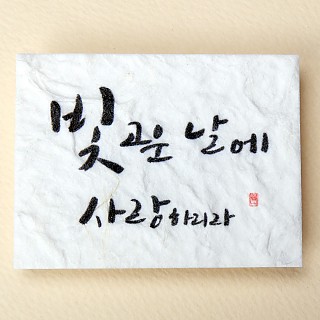 빛 고운 날에
사랑하리라